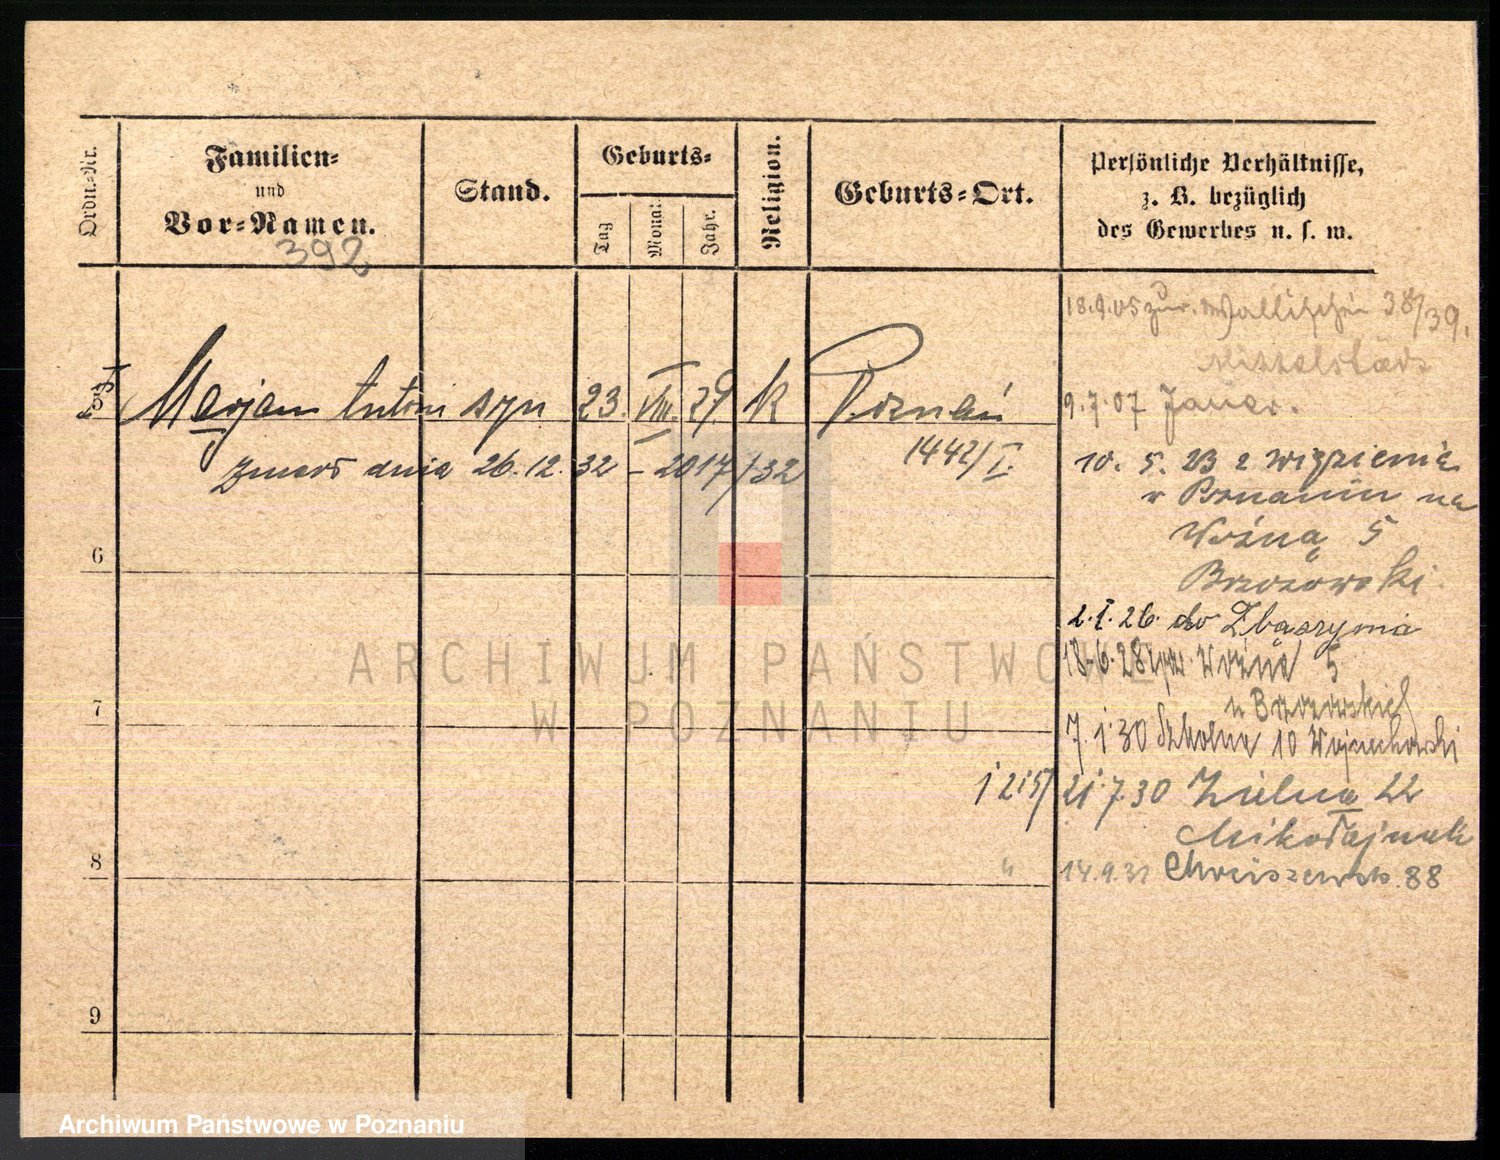 Ordn.-Nr.
Familien-
und
Vor-Namen.
Stand.
Geburts-
Tag
Monat
Jahr.
Religion.
Geburts-Ort.
Persönliche Verhältnisse,
z. B. bezüglich
des Gewerbes u. s. w.
392
18.9.05 zur. Wallischei 38/39.
9.7.07 Jauer.
Marjan Antoni syn 23. VIII. 29. k Poznań
1442/I.
Zmarł dnia 26.12.32 – 2017/32
10. 5. 23 z więzienia
w Poznaniu na
Woźną 5
Brzozowski.
6
2.I.26. do Zbąszynia
18.6.28 Woźna 5
u Brzozowskich
7
7.1.30 Szkolna 10 Wojciechowski
1215/
21.7.30 Zielna 22
Mikołajczak
8
" 14.9.31 88
9
ARCHIWUM PAŃSTWOWE
W POZNANIU
Archiwum Państwowe w Poznaniu